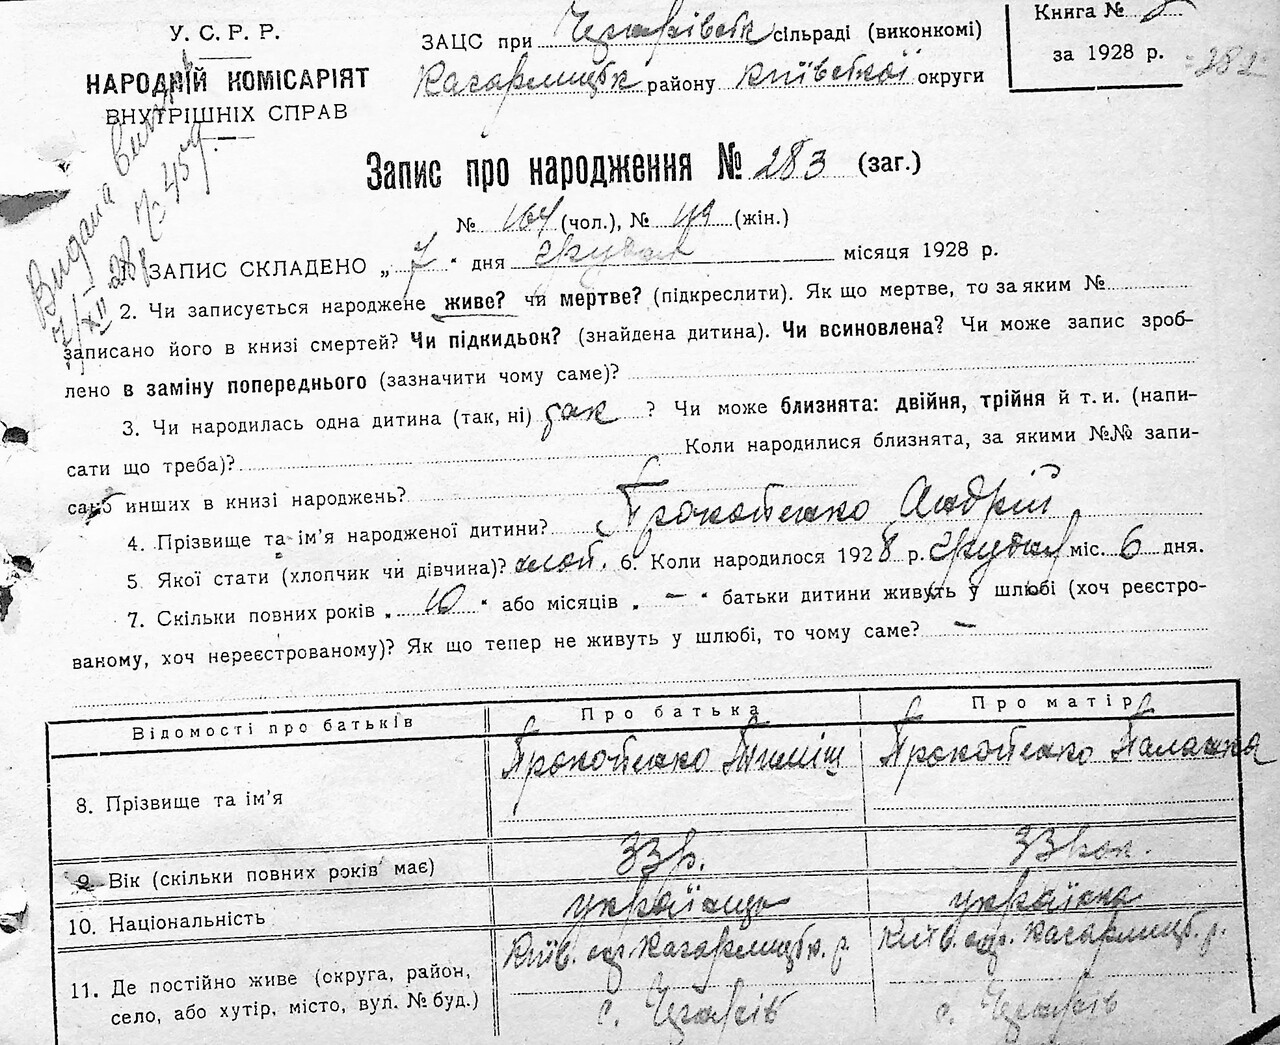 У. С. Р. Р.
НАРОДНІЙ КОМІСАРІЯТ
ВНУТРІШНІХ СПРАВ
ЗАЦС при сільраді (виконкомі)
Кагарлицьк району Київської округи
Книга №
за 1928 р.
282
Видана вип
7/XII 28 р. № 459
Запис про народження № 283 (заг.)
№ 164 (чол.), № 119 (жін.)
1. ЗАПИС СКЛАДЕНО „ 7 “ дня грудня місяця 1928 р.
2. Чи записується народжене живе? чи мертве? (підкреслити). Як що мертве, то за яким №
записано його в книзі смертей? Чи підкидьок? (знайдена дитина). Чи всиновлена? Чи може запис зроб-
лено в заміну попереднього (зазначити чому саме)?
3. Чи народилась одна дитина (так, ні) так ? Чи може близнята: двійня, трійня й т. и. (напи-
сати що треба)? Коли народилися близнята, за якими №№ запи-
сано инших в книзі народжень?
4. Прізвище та ім’я народженої дитини? Прокопенко Андрій
5. Якої стати (хлопчик чи дівчина)? хлоп. 6. Коли народилося 1928 р. грудня міс. 6 дня.
7. Скільки повних років „ 10 “ або місяців „ — “ батьки дитини живуть у шлюбі (хоч реєстро-
ваному, хоч нереєстрованому)? Як що тепер не живуть у шлюбі, то чому саме? —
Відомості про батьків Про батька Про матір
8. Прізвище та ім’я Прокопенко Тиміш Прокопенко Палажка
9. Вік (скільки повних років має) 33 р. 33 рок.
10. Національність українець українка
11. Де постійно живе (округа, район, Київ. окр. Кагарлицьк. р. Київ. окр. Кагарлицьк. р.
село, або хутір, місто, вул. № буд.) с. с.